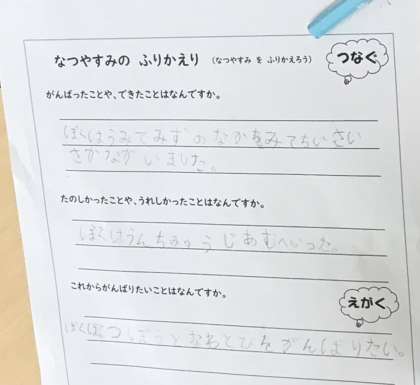 なつやすみの ふりかえり (なつやすみ を ふりかえろう)
つなぐ
がんばったことや、できたことはなんですか。
ぼくはうみでみずのなかをみてちいさい
さかながいました。
たのしかったことや、うれしかったことはなんですか。
ぼくはうんちゅうじあむへいった。
これからがんばりたいことはなんですか。
えがく
ぼくはてつぼうとなわとびをがんばりたい。